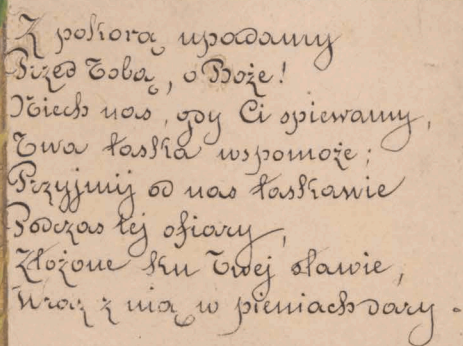 Z pokorą upadamy
Przed Tobą, o Boże!
Niech nas, gdy Ci spiewamy,
Twa łaska wspomoże;
Przyjmij od nas łaskawie
Podczas tej ofiary,
Złożone ku Twej sławie,
Wraz z nią w pieniach dary.